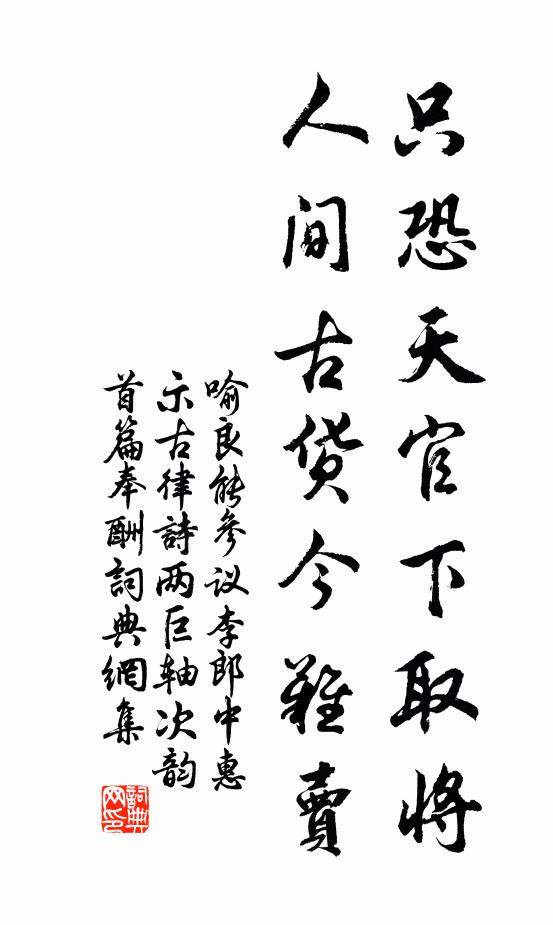 只恐天官下取将
人间古货今难賣
喻良能参议李郎中惠
示古律詩两巨轴次韵
首篇奉酬詞典網集
詞典网印